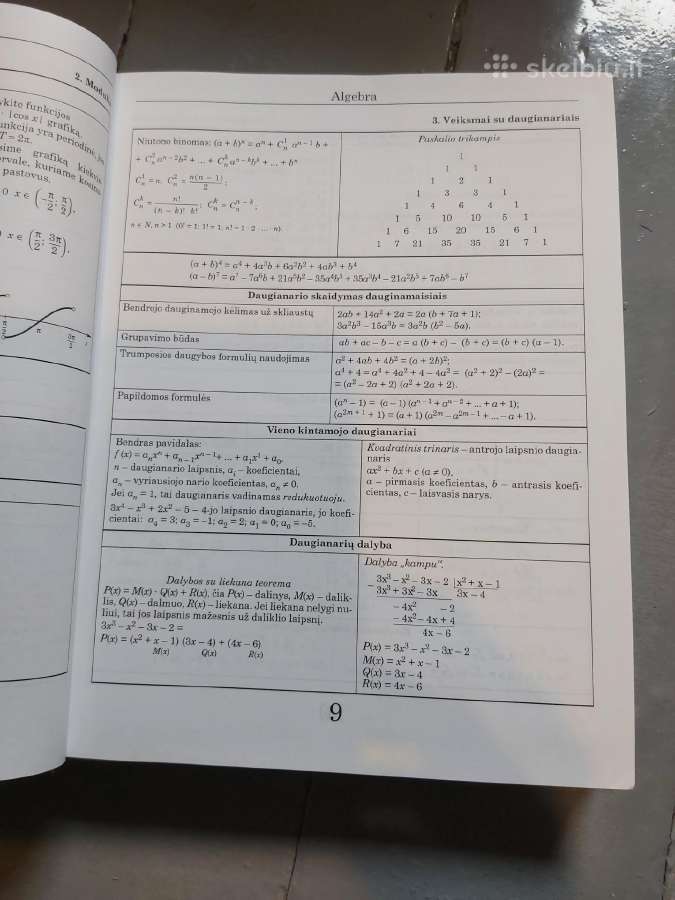 2. Modul
ykite funkcijos
|cos x| grafiką.
unkcija yra periodinė, jos
T = 2π.
sime grafiką kiekvie
ervale, kuriame kosinu
pastovus.
0 x ∈ (−π/2; π/2),
0 x ∈ (π/2; 3π/2)
π/2 π 3π/2
skelbiu.lt
Algebra
3. Veiksmai su daugianariais
Niutono binomas: (a + b)ⁿ = aⁿ + C¹ₙ aⁿ⁻¹ b +
+ C²ₙ aⁿ⁻²b² + ... + Cᵏₙ aⁿ⁻ᵏbᵏ + ... + bⁿ
C¹ₙ = n, C²ₙ = n(n − 1)/2;
Cᵏₙ = n!/((n − k)! k!); Cᵏₙ = Cⁿ⁻ᵏₙ,
n ∈ N, n > 1 (0! = 1; 1! = 1; n! = 1 · 2 · ... · n).
Paskalio trikampis
1
1 1
1 2 1
1 3 3 1
1 4 6 4 1
1 5 10 10 5 1
1 6 15 20 15 6 1
1 7 21 35 35 21 7 1
(a + b)⁴ = a⁴ + 4a³b + 6a²b² + 4ab³ + b⁴
(a − b)⁷ = a⁷ − 7a⁶b + 21a⁵b² − 35a⁴b³ + 35a³b⁴ − 21a²b⁵ + 7ab⁶ − b⁷
Daugianario skaidymas dauginamaisiais
Bendrojo dauginamojo kėlimas už skliaustų
2ab + 14a² + 2a = 2a (b + 7a + 1);
3a²b³ − 15a³b = 3a²b (b² − 5a).
Grupavimo būdas
ab + ac − b − c = a (b + c) − (b + c) = (b + c) (a − 1).
Trumposios daugybos formulių naudojimas
a² + 4ab + 4b² = (a + 2b)²;
a⁴ + 4 = a⁴ + 4a² + 4 − 4a² = (a² + 2)² − (2a)² =
= (a² − 2a + 2) (a² + 2a + 2).
Papildomos formulės
(aⁿ − 1) = (a − 1) (aⁿ⁻¹ + aⁿ⁻² + ... + a + 1);
(a²ᵐ⁺¹ + 1) = (a + 1) (a²ᵐ − a²ᵐ⁻¹ + ... − a + 1).
Vieno kintamojo daugianariai
Bendras pavidalas:
f (x) = aₙxⁿ + aₙ₋₁xⁿ⁻¹ + ... + a₁x¹ + a₀.
n – daugianario laipsnis, aᵢ – koeficientai,
aₙ – vyriausiojo nario koeficientas, aₙ ≠ 0.
Jei aₙ = 1, tai daugianaris vadinamas redukuotuoju.
3x⁴ − x³ + 2x² − 5 – 4-jo laipsnio daugianaris, jo koefi-
cientai: a₄ = 3; a₃ = −1; a₂ = 2; a₁ = 0; a₀ = −5.
Kvadratinis trinaris – antrojo laipsnio daugia-
naris
ax² + bx + c (a ≠ 0),
a – pirmasis koeficientas, b – antrasis koefi-
cientas, c – laisvasis narys.
Daugianarių dalyba
Dalybos su liekana teorema
P(x) = M(x) · Q(x) + R(x), čia P(x) – dalinys, M(x) – dalik-
lis, Q(x) – dalmuo, R(x) – liekana. Jei liekana nelygi nu-
liui, tai jos laipsnis mažesnis už daliklio laipsnį.
3x³ − x² − 3x − 2 =
P(x) = (x² + x − 1) (3x − 4) + (4x − 6)
M(x) Q(x) R(x)
Dalyba „kampu“.
3x³ − x² − 3x − 2 | x² + x − 1
3x³ + 3x² − 3x 3x − 4
− 4x² − 2
− 4x² − 4x + 4
4x − 6
P(x) = 3x³ − x² − 3x − 2
M(x) = x² + x − 1
Q(x) = 3x − 4
R(x) = 4x − 6
9